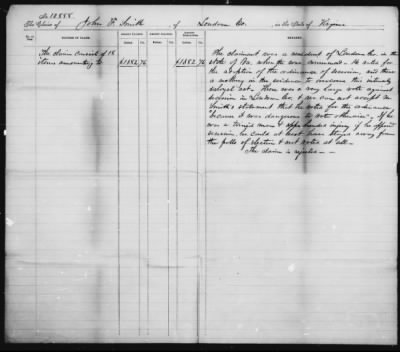 No 18888.
The Claim of John F. Smith of Loudoun Co. in the State of Virginia
NATURE OF CLAIM.
AMOUNT CLAIMED.
AMOUNT ALLOWED.
AMOUNT DISALLOWED.
REMARKS.
The claim consists of 18
items amounting to $1852 76 $1852 76
The claimant was a resident of Loudon Co. in the
state of Va. when the war commenced. He voted for
the adoption of the ordinance of secession, and there
is nothing in the evidence to overcome this
disloyal act. There was a very large vote against
secession in Loudon Co. & we can not accept Mr.
Smith's statement that he voted for the ordinance
because it was dangerous to vote otherwise. If he
was a timid man & apprehended injury if he opposed
secession, he could at least have stayed away from
the polls of election & not voted at all.
The claim is rejected